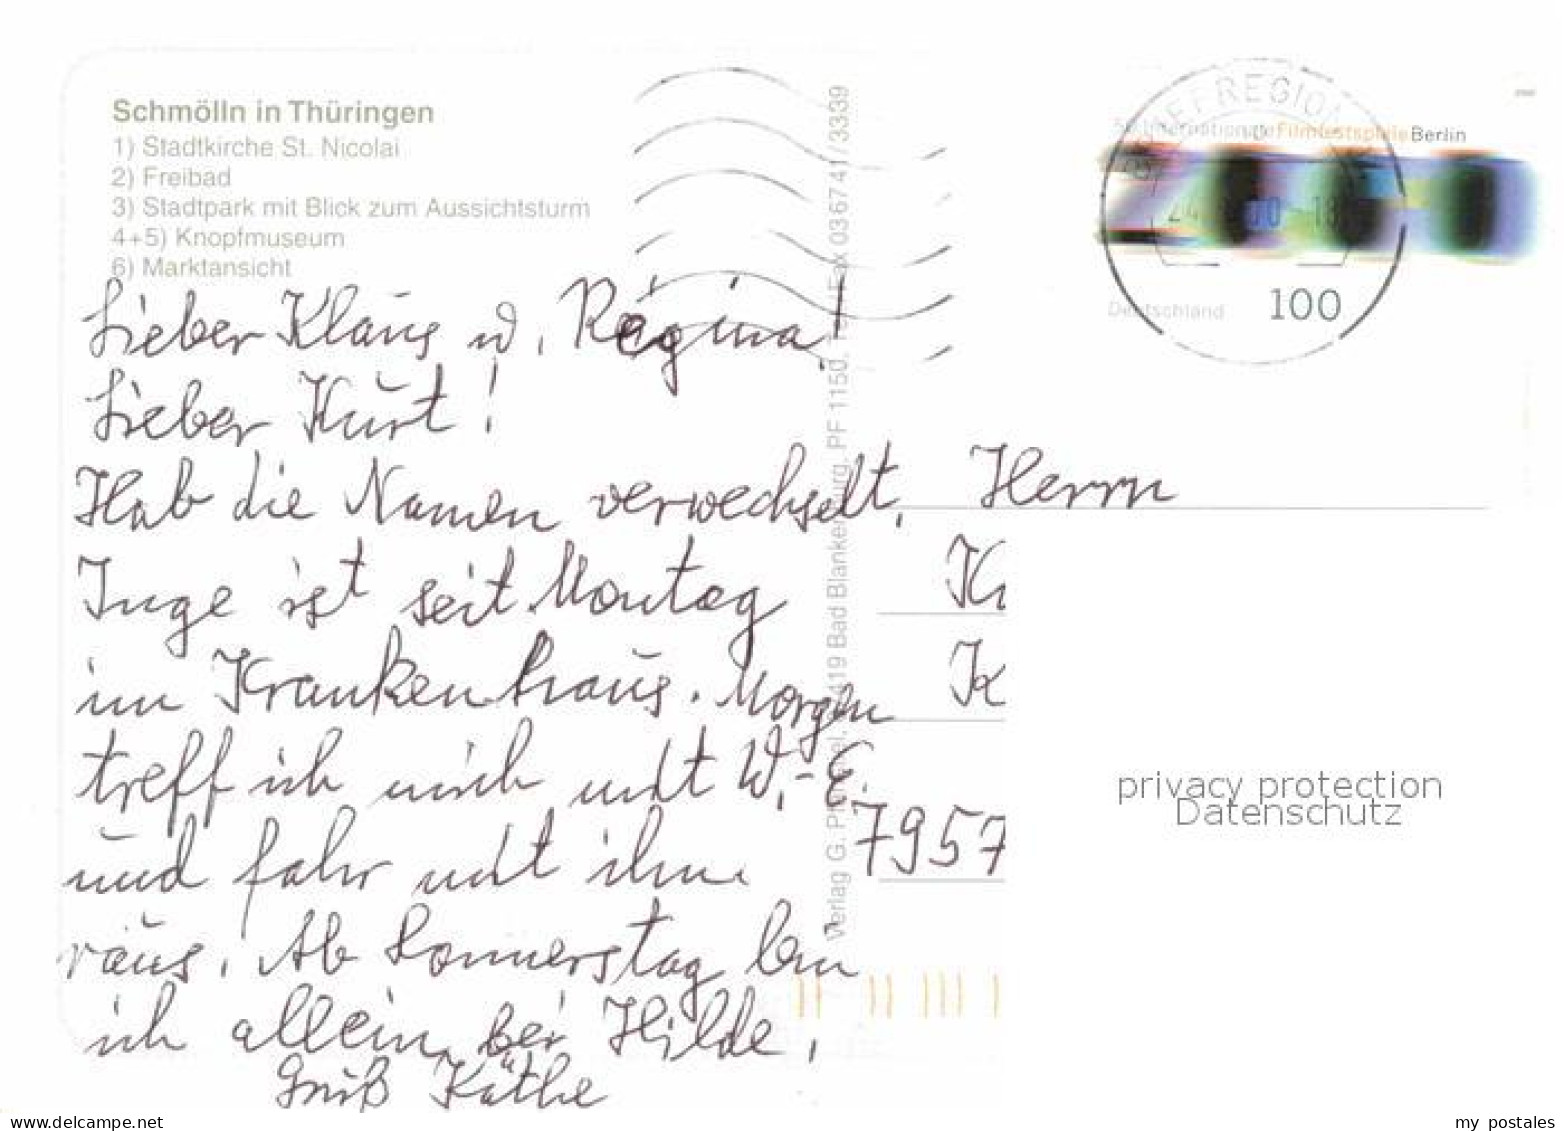 Schmölln in Thüringen
1) Stadtkirche St. Nicolai
2) Freibad
3) Stadtpark mit Blick zum Aussichtsturm
4+5) Knopfmuseum
6) Marktansicht
Lieber Klaus u. Regina!
Lieber Kurt!
Hab die Namen verwechselt.
Inge ist seit Montag
im Krankenhaus. Morgen
treff ich mich mit W.-E.
und fahr mit ihm
raus. Ab Donnerstag bin
ich allein bei Hilde.
Gruß Käthe
Verlag G. 419 Bad Blankenburg, PF 1150, Fax 036741/3339
BRIEFREGION
24 00-18
50. Internationale Filmfestspiele Berlin
Deutschland 100
Herrn
K
K
7957
privacy protection
Datenschutz
www.delcampe.net
my_postales